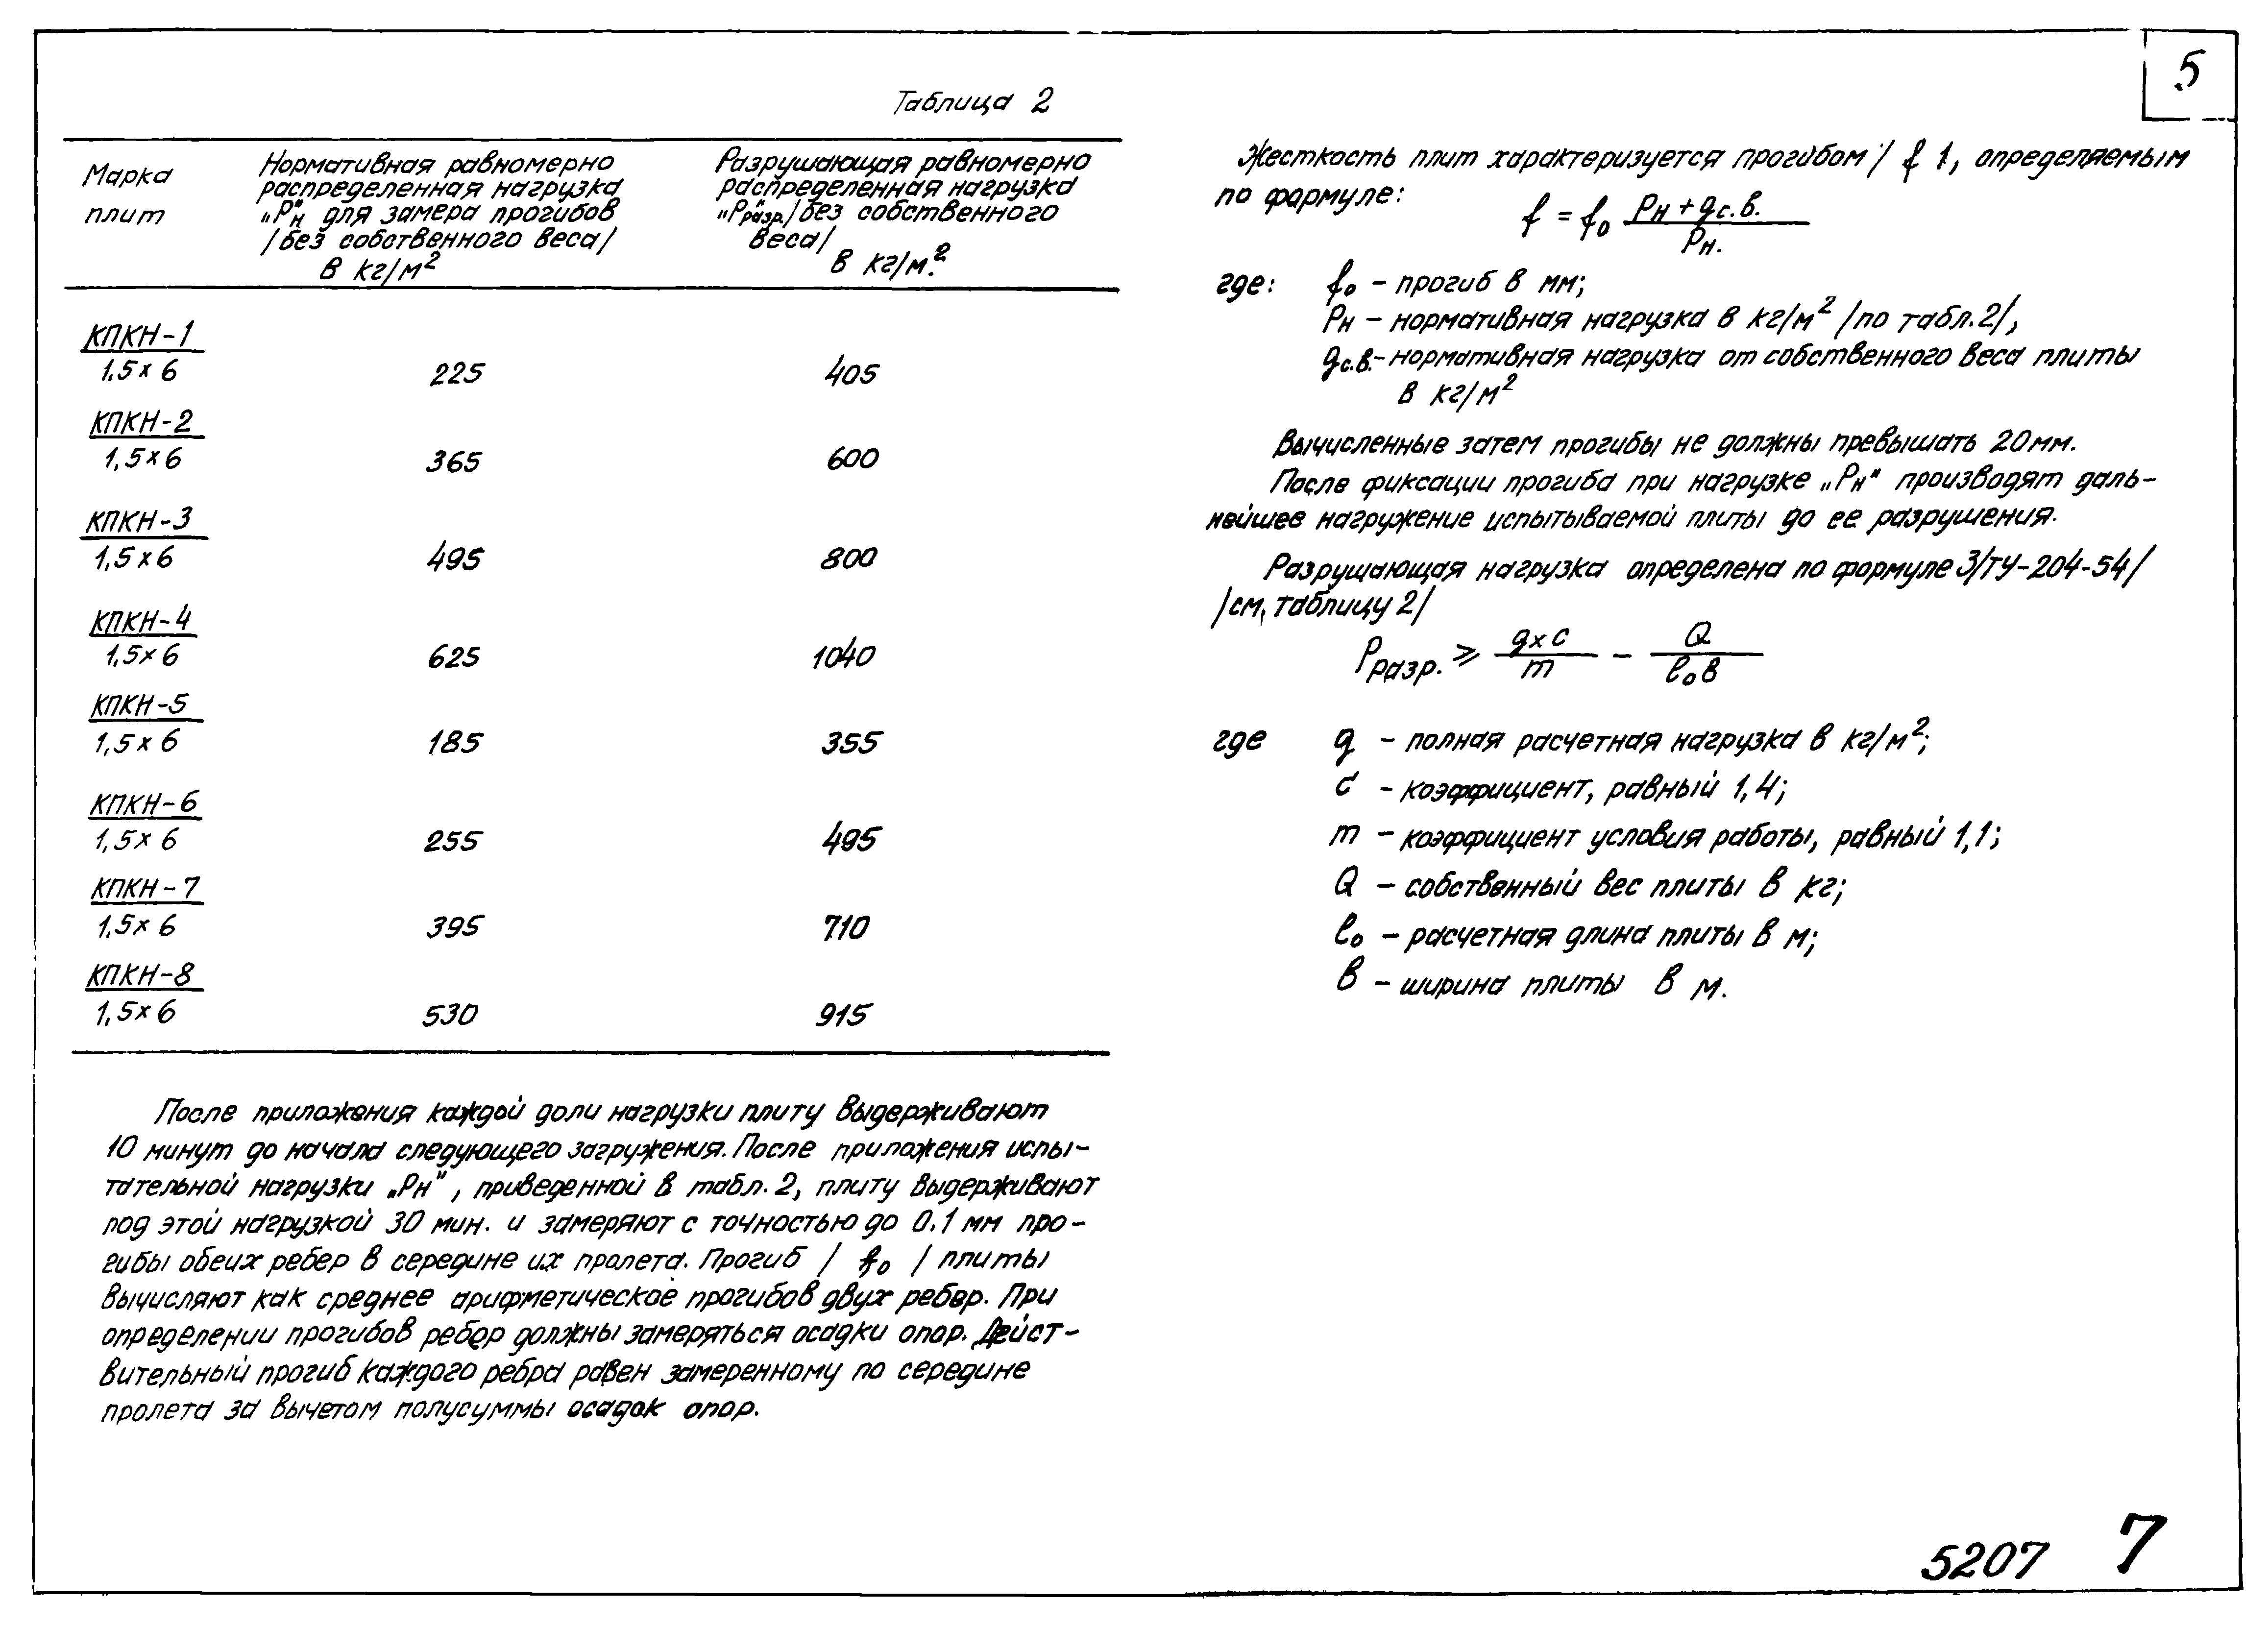 5
Таблица 2
Марка
плит
Нормативная равномерно
распределенная нагрузка
„Рн" для замера прогибов
/без собственного веса/
в кг/м²
Разрушающая равномерно
распределенная нагрузка
„Рразр."/без собственного
веса/
в кг/м.²
КПКН-1
1,5х6 225 405
КПКН-2
1,5х6 365 600
КПКН-3
1,5х6 495 800
КПКН-4
1,5х6 625 1040
КПКН-5
1,5х6 185 355
КПКН-6
1,5х6 255 495
КПКН-7
1,5х6 395 710
КПКН-8
1,5х6 530 915
После приложения каждой доли нагрузки плиту выдерживают
10 минут до начала следующего загружения. После приложения испы-
тательной нагрузки „Рн", приведенной в табл. 2, плиту выдерживают
под этой нагрузкой 30 мин. и замеряют с точностью до 0,1 мм про-
гибы обеих ребер в середине их пролета. Прогиб / f₀ / плиты
вычисляют как среднее арифметическое прогибов двух ребер. При
определении прогибов ребер должны замеряться осадки опор. Дейст-
вительный прогиб каждого ребра равен замеренному по середине
пролета за вычетом полусуммы осадок опор.
Жесткость плит характеризуется прогибом / f 1, определяемым
по формуле:
f = f₀ (Рн + gс.в.) / Рн.
где: f₀ – прогиб в мм;
Рн – нормативная нагрузка в кг/м² /по табл.2/,
gс.в.– нормативная нагрузка от собственного веса плиты
в кг/м²
Вычисленные затем прогибы не должны превышать 20мм.
После фиксации прогиба при нагрузке „Рн" производят даль-
нейшее нагружение испытываемой плиты до ее разрушения.
Разрушающая нагрузка определена по формуле 3/ТУ-204-54/
/см, таблицу 2/
Рразр. ⩾ gхс / m – Q / l₀в
где g – полная расчетная нагрузка в кг/м²;
с – коэффициент, равный 1,4;
m – коэффициент условия работы, равный 1,1;
Q – собственный вес плиты в кг;
l₀ – расчетная длина плиты в м;
в – ширина плиты в м.
5207 7